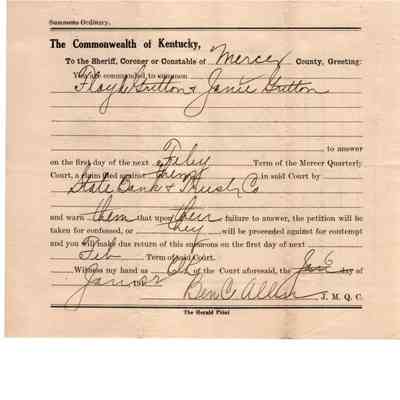 Summons Ordinary.
The Commonwealth of Kentucky,
To the Sheriff, Coroner or Constable of Mercer County, Greeting:
You are commanded to summon
Floyd Gritton & Janie Gritton
to answer
on the first day of the next Feby Term of the Mercer Quarterly
Court, a claim filed against them in said Court by
State Bank & Trust Co
and warn them that upon their failure to answer, the petition will be
taken for confessed, or they will be proceeded against for contempt
and you will make due return of this summons on the first day of next
Feb Term of said Court.
Witness my hand as of the Court aforesaid, the day of
Ben C Allin J. M. Q. C.
The Herald Print